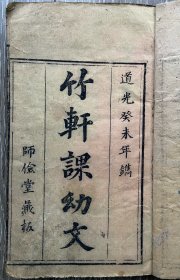 道光癸未年鐫
竹軒課幼文
師儉堂藏板